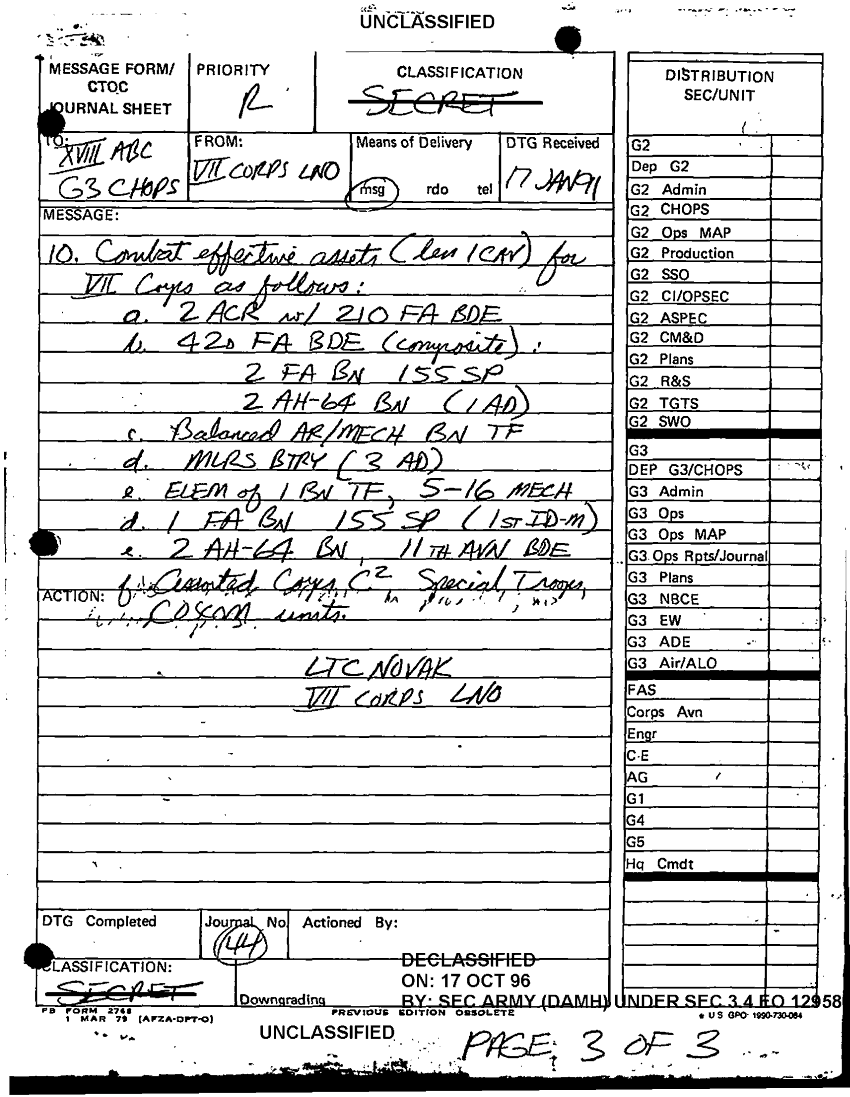 UNCLASSIFIED
MESSAGE FORM/
CTOC
JOURNAL SHEET
PRIORITY
R
CLASSIFICATION
SECRET
TO:
XVIII ABC
G3 CHOPS
FROM:
VII CORPS LNO
Means of Delivery
msg rdo tel
DTG Received
17 JAN 91
MESSAGE:
10. Combat effective assets (less 1 CAV) for
VII Corps as follows:
a. 2 ACR w/ 210 FA BDE
b. 42D FA BDE (composite):
2 FA BN 155 SP
2 AH-64 BN (1 AD)
c. Balanced AR/MECH BN TF
d. MLRS BTRY (3 AD)
e. ELEM of 1 BN TF, 5-16 MECH
d. 1 FA BN 155 SP (1ST ID-M)
e. 2 AH-64 BN, 11TH AVN BDE
ACTION: f. Assorted Corps C2, Special Troops,
COSCOM units.
LTC NOVAK
VII CORPS LNO
DTG Completed
Journal No.
144
Actioned By:
CLASSIFICATION:
SECRET
Downgrading
DECLASSIFIED
ON: 17 OCT 96
BY: SEC ARMY (DAMH) UNDER SEC 3.4 EO 12958
FB FORM 2768
1 MAR 79 (AFZA-DPT-O)
PREVIOUS EDITION OBSOLETE
* US GPO: 1990-730-084
UNCLASSIFIED
PAGE 3 OF 3
DISTRIBUTION
SEC/UNIT
G2
Dep G2
G2 Admin
G2 CHOPS
G2 Ops MAP
G2 Production
G2 SSO
G2 CI/OPSEC
G2 ASPEC
G2 CM&D
G2 Plans
G2 R&S
G2 TGTS
G2 SWO
G3
DEP G3/CHOPS
G3 Admin
G3 Ops
G3 Ops MAP
G3 Ops Rpts/Journal
G3 Plans
G3 NBCE
G3 EW
G3 ADE
G3 Air/ALO
FAS
Corps Avn
Engr
C-E
AG
G1
G4
G5
Hq Cmdt